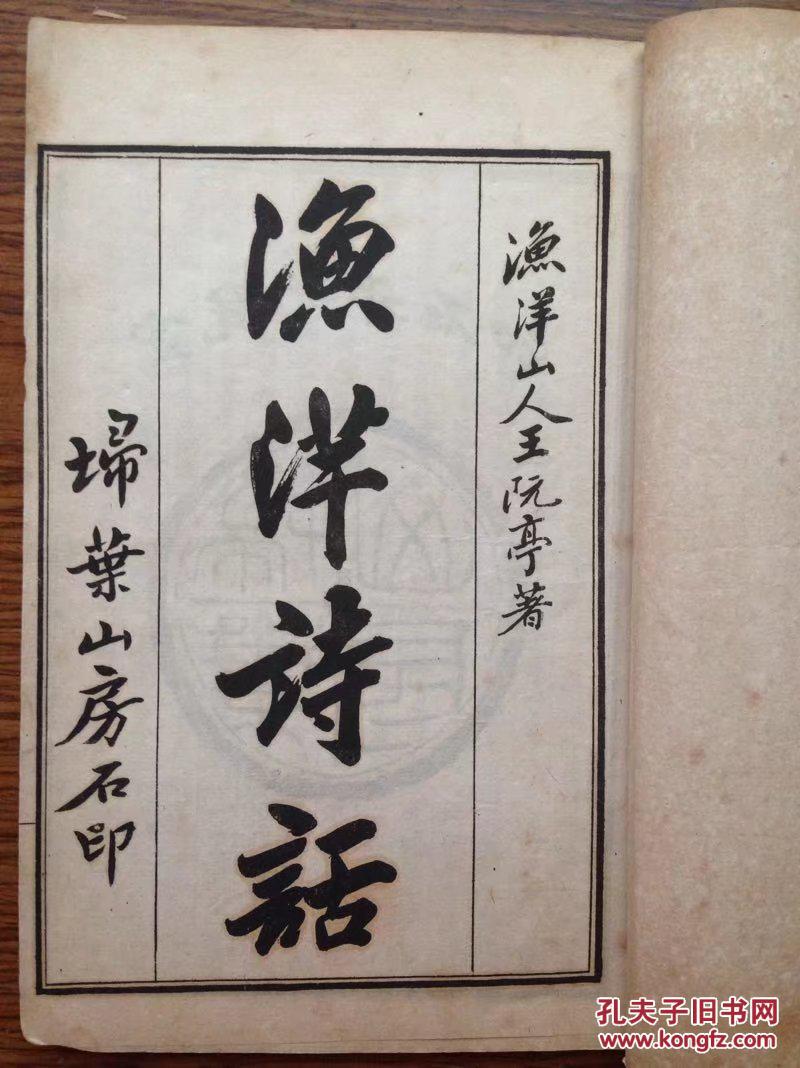 漁洋山人王阮亭著
漁洋詩話
埽葉山房石印
孔夫子旧书网
www.kongfz.com